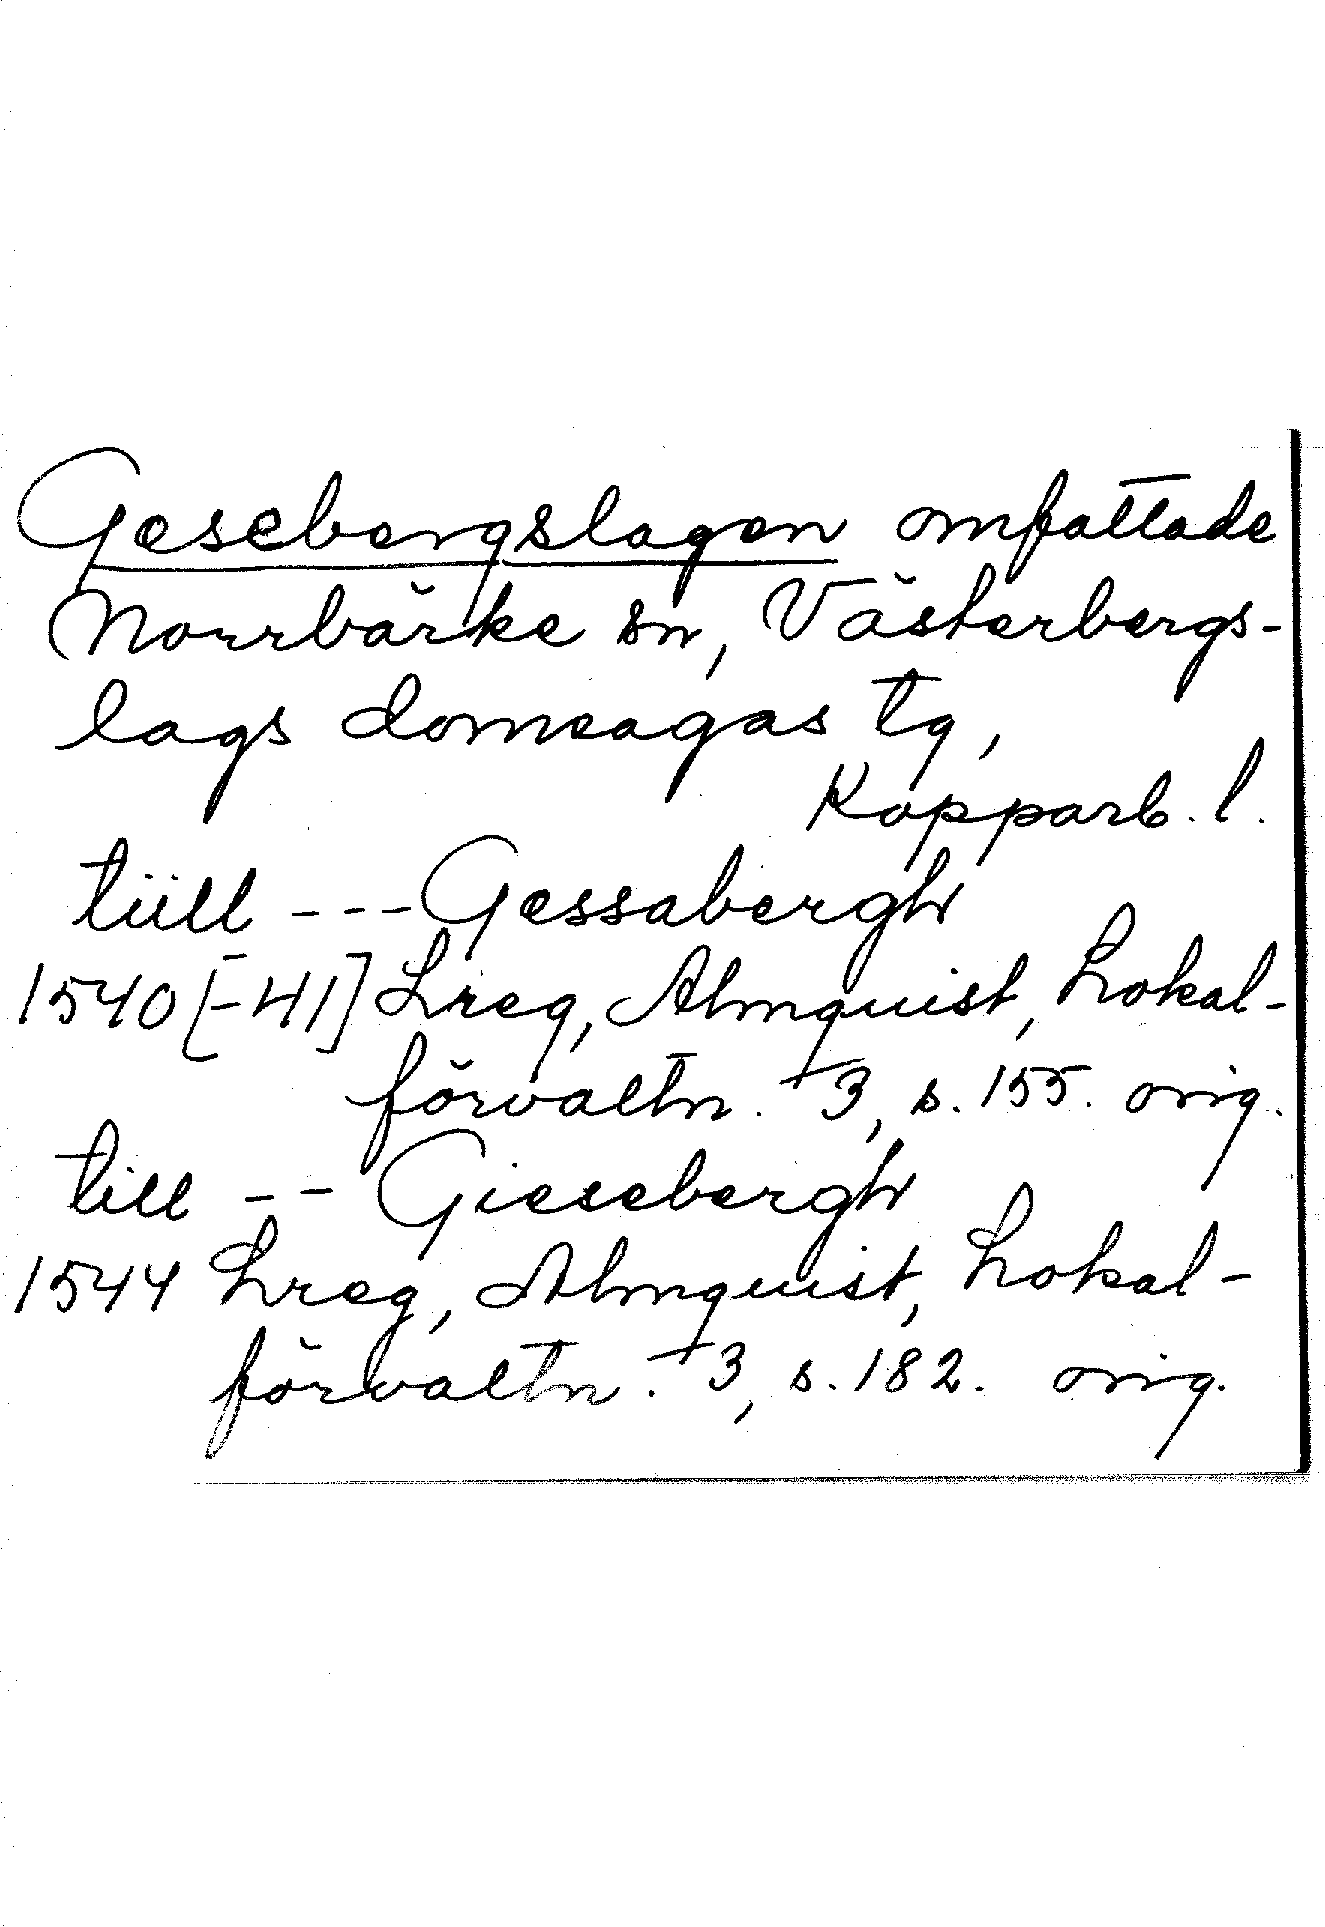 Gæsebergslagen omfattade
Norrbärke sn, Västerbergs-
lags domsagas tg,
Kopparb. l.
tiill --- Gæssabergh
1540 [-41] Lreg, Almquist, Lokal-
förvaltn. 3, s. 155. orig.
till -- Giesebergh
1544 Lreg, Almquist, Lokal-
förvaltn. 3, s. 182. orig.